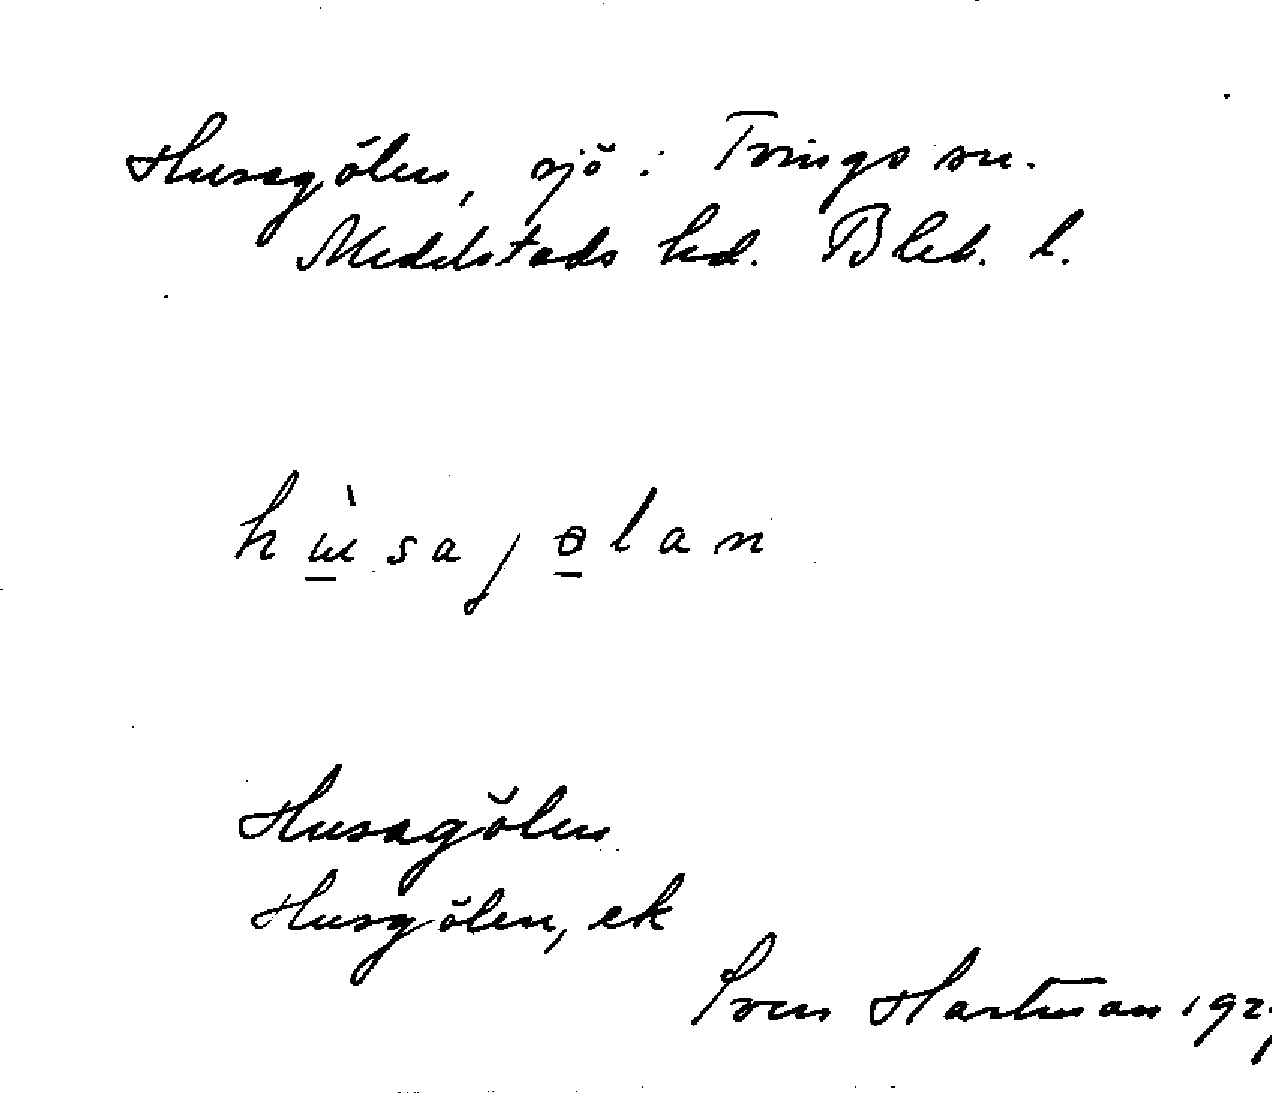 Husagölen, sjö: Tvings sn.
Medelstads hd. Blek. l.
hɯ̀sajɵlan
Husagölen
Husgölen, ek
Sven Hartman 192